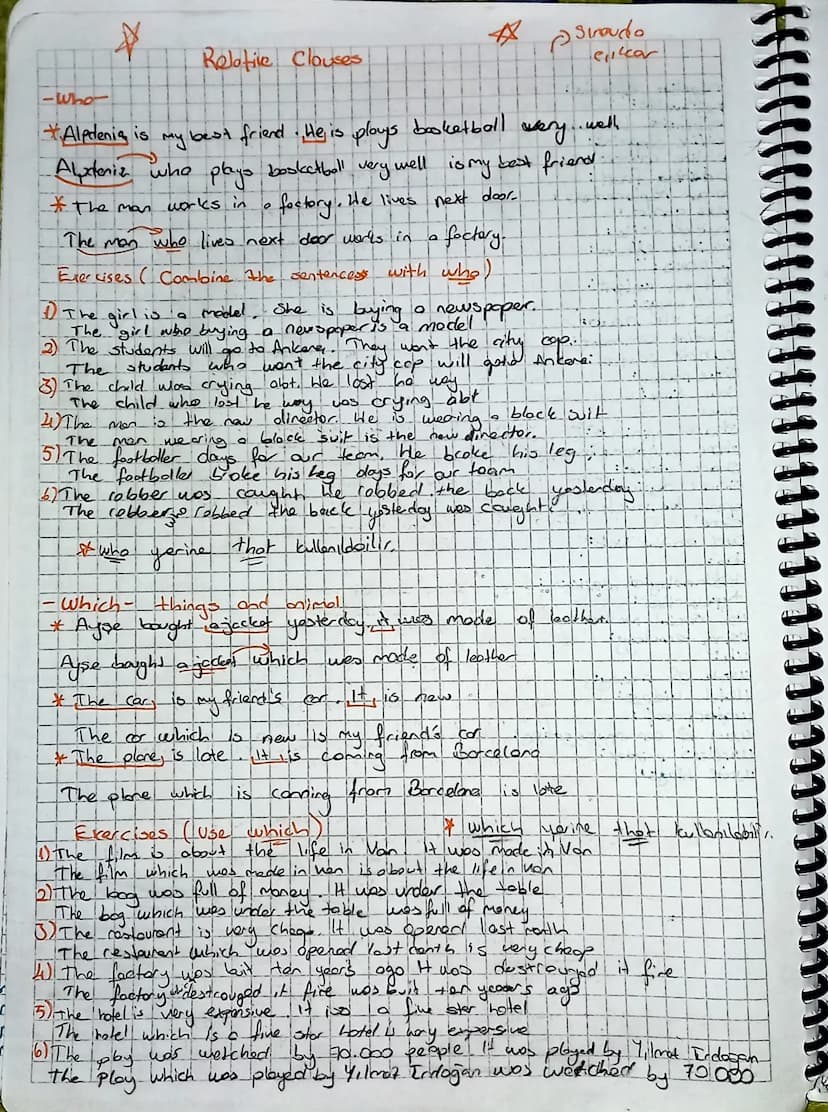 Sınavda
Relative Clauses
çıkar
-who-
* Alpdeniz is my best friend. He is plays basketball very well
Alpdeniz who plays basketball very well is my best friend
* The man works in a factory. He lives next door.
The man who lives next door works in a factory.
Exercises (Combine the sentences with who)
1) The girl is a model. She is buying a newspaper.
The girl who buying a newspaper is a model
2) The students will go to Ankara. They want the city cop.
The students who won't the city cop will goto Ankara.
3) The child was crying abt. He lost he way
The child who lost he way was crying abt
4) The man is the new director. He is wearing a black suit
The man wearing a black suit is the new director.
5) The footboller days for our team. He broke his leg.
The footboller broke his leg plays for our team
6) The robber was caught. He robbed the back yesterday
The robber robbed the back yesterday was caught.
* who yerine that kullanıldailir.
-which- things and animal
* Ayşe bought a jacket yesterday. it was made of leather.
Ayşe baught a jacket which was made of leather
* The car, is my friend's car. It, is new
The car which is new is my friend's car
* The plane, is late. It is coming from Barcelona
The plane which is coming from Barcelona is late
Exercises (Use which) * which yerine that kullanılabilir.
1) The film is about the life in Van. It was made in Van
The film which was made in van is about the life in van
2) The bag was full of money. It was under the table
The bag which was under the table was full of money
3) The restaurant is very cheap. It was opened last month
The restaurant which was opened last month is very cheap
4) The factory was buit ten years ago It was destrouyed it fire
The factory destrouged it fire was buit ten years ago
5) The hotel is very expensive. It is a five star hotel
The hotel which is a five star hotel is very expensive
6) The play was watched by 70.000 people. It was played by Yılmaz Erdoğan
The play which was played by Yılmaz Erdoğan was watched by 70.000